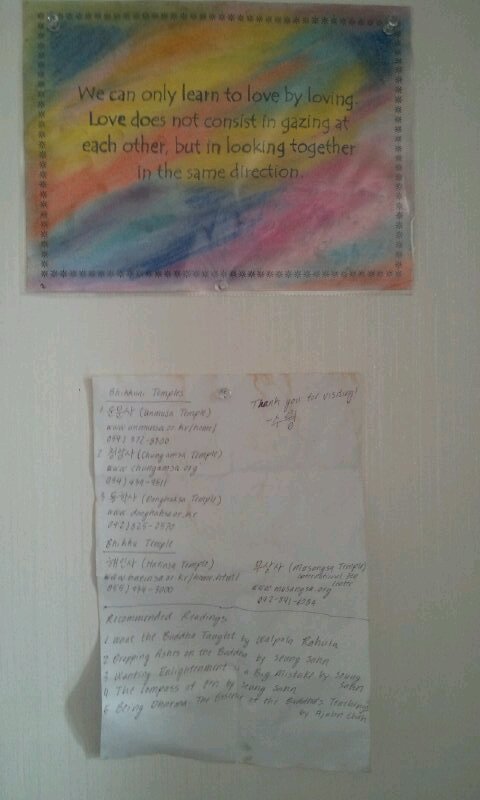 We can only learn to love by loving.
Love does not consist in gazing at
each other, but in looking together
in the same direction.
Bhikkhuni Temples
Thank you for visiting!
1. 운문사 (Unmunsa Temple)
www.unmunsa.or.kr/home/
054) 372-8800
2. 청암사 (Chungamsa Temple)
www.chungamsa.org
3. 동학사 (Donghaksa Temple)
www.donghaksa.or.kr
042) 825-2570
Bhikkhu Temple
해인사 (Haeinsa Temple)
055) 934-3000
무상사 (Musangsa Temple)
International Zen
Center
www.musangsa.org
042-841-6084
Recommended Readings
1 What the Buddha Taught by Walpola Rahula
2 Dropping Ashes on the Buddha by Seung Sahn
3 Wanting Enlightenment is a Big Mistake by Seung
Sahn
4 The Compass of Zen by Seung Sahn
Being Dharma: The Essence of the Buddha's Teachings
by Ajahn Chah